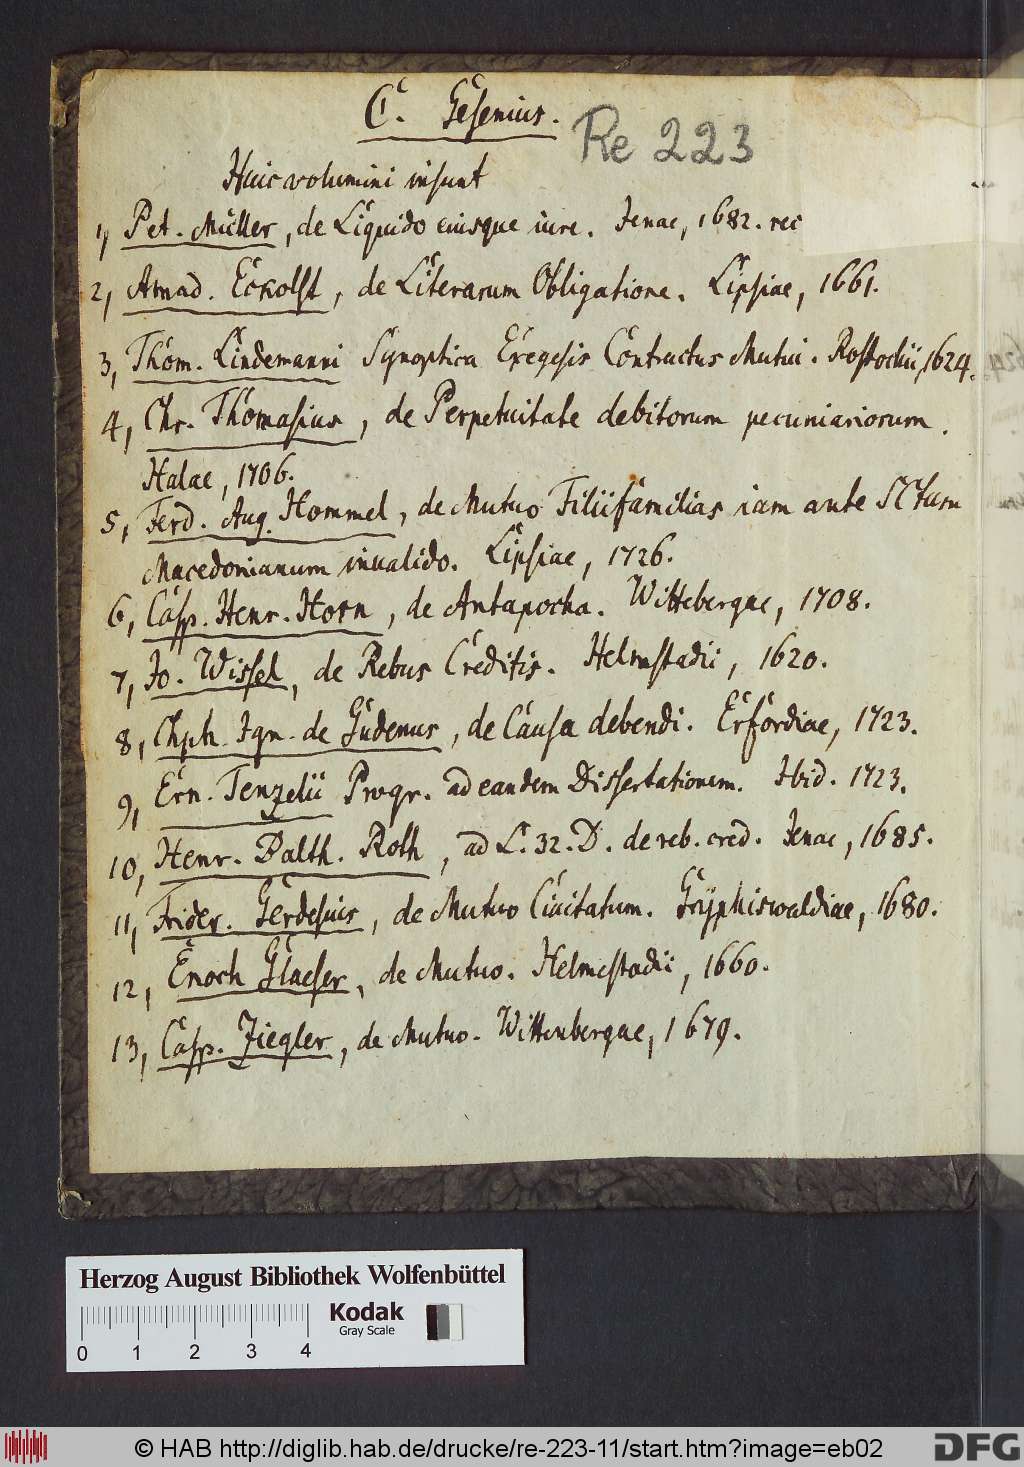 C. Gesenius.
Re 223
Huic volumini insunt
1, Pet. Müller, de Liquido eiusque iure. Jenae, 1682. rec
2, Amad. Eckolst, de Literarum Obligatione. Lipsiae, 1661.
3, Thom. Lindemanni Synoptica Exegesis Contractus Mutui. Rostochii, 1624.
4, Chr. Thomasius, de Perpetuitate debitorum pecuniariorum.
Halae, 1706.
5, Ferd. Aug. Hommel, de Mutuo Filiifamilias iam ante SCtum
Macedonianum invalido. Lipsiae, 1726.
6, Casp. Henr. Horn, de Antapocha. Wittebergae, 1708.
7, Jo. Wissel, de Rebus Creditis. Helmstadii, 1620.
8, Chph. Ign. de Gudenus, de Causa debendi. Erfordiae, 1723.
9, Ern. Tenzelii Progr. ad eandem Dissertationem. Ibid. 1723.
10, Henr. Balth. Roth, ad L. 32. D. de reb. cred. Jenae, 1685.
11, Frider. Gerdesius, de Mutuo Civitatum. Gryphiswaldiae, 1680.
12, Enoch Glaeser, de Mutuo. Helmestadii, 1660.
13, Casp. Ziegler, de Mutuo. Wittenbergae, 1679.
Herzog August Bibliothek Wolfenbüttel
Kodak
Gray Scale
0 1 2 3 4
© HAB http://diglib.hab.de/drucke/re-223-11/start.htm?image=eb02
DFG